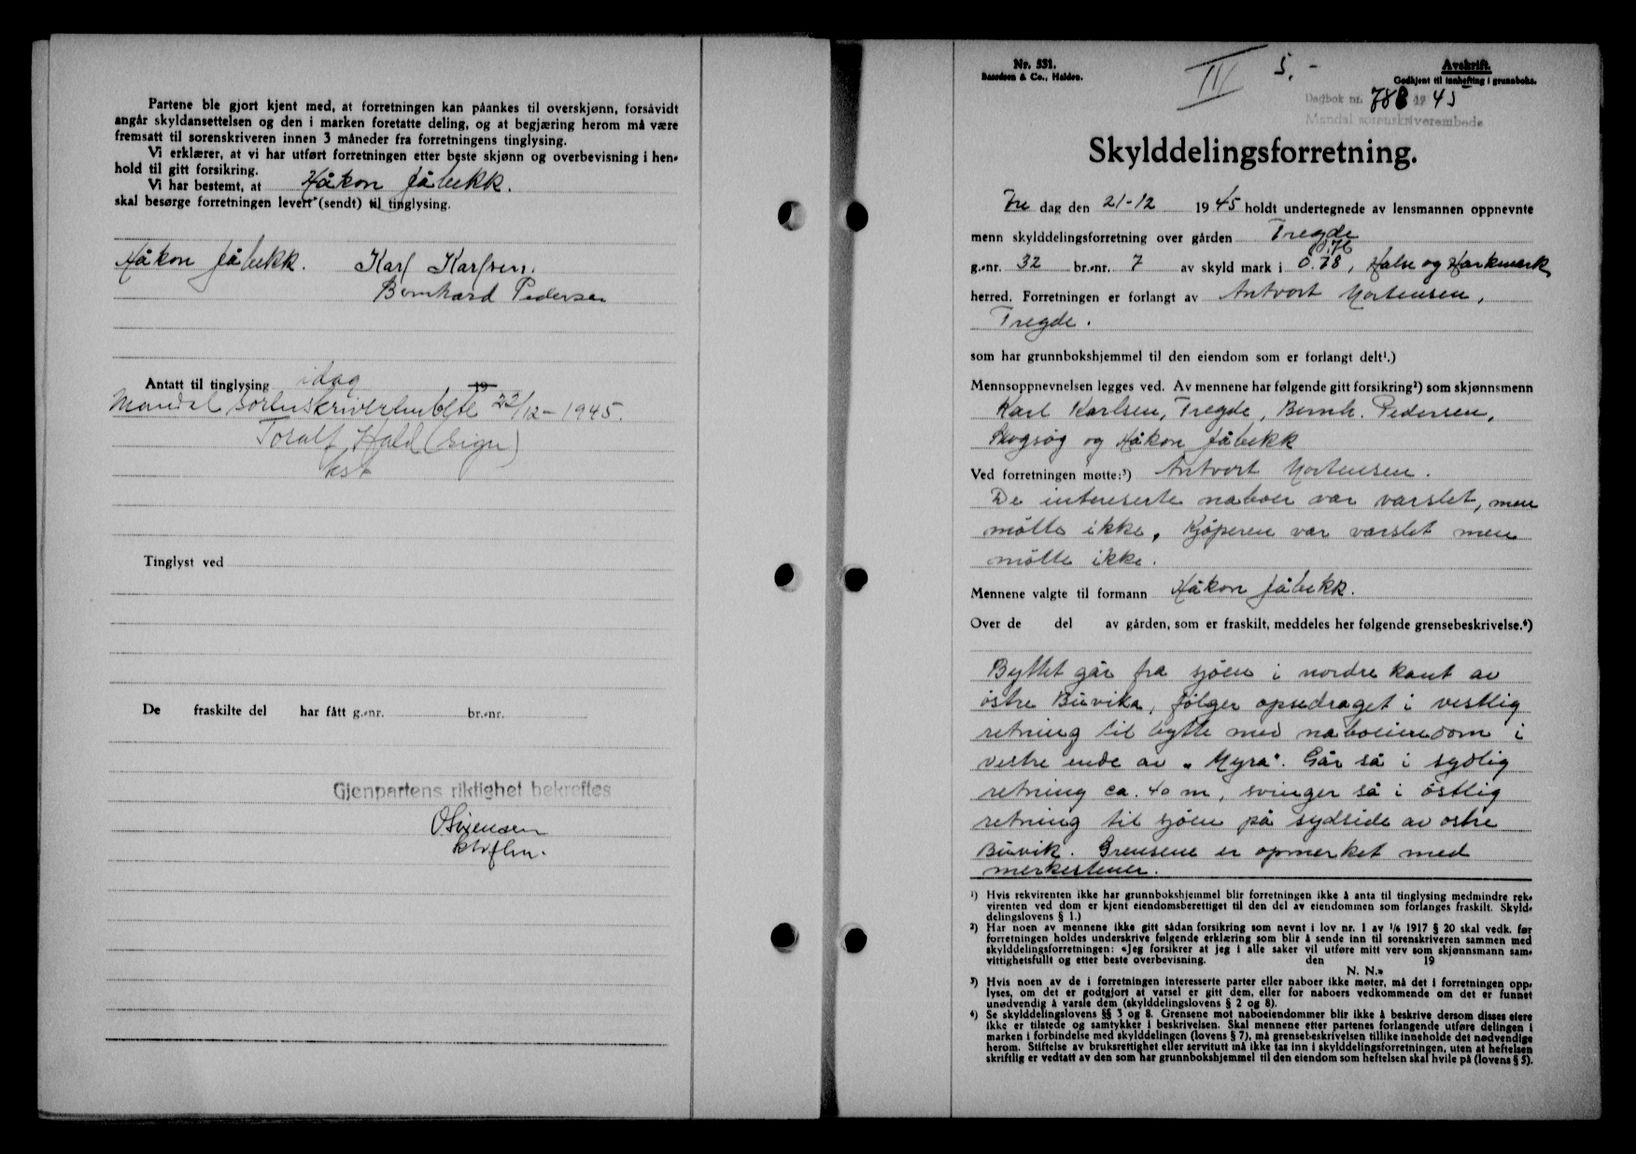 Partene ble gjort kjent med, at forretningen kan påankes til overskjønn, forsåvidt
angår skyldansettelsen og den i marken foretatte deling, og at begjæring herom må være
fremsatt til sorenskriveren innen 3 måneder fra forretningens tinglysing.
Vi erklærer, at vi har utført forretningen etter beste skjønn og overbevisning i hen-
hold til gitt forsikring.
Vi har bestemt, at Håkon Jåbekk.
skal besørge forretningen levert (sendt) til tinglysing.
Håkon Jåbekk. Karl Karlsen.
Bernhard Pedersen
Antatt til tinglysing idag 19
Mandal sorenskriverembete 22/12-1945.
Toralf Hald (sign)
Tinglyst ved
De fraskilte del har fått g.-nr. br.-nr.
Gjenpartens riktighet bekreftes
Nr. 531.
Bassdoen & Co., Halden.
III 5.-
Avskrift.
Godkjent til innhefting i grunnboks.
Dagbok nr. 788 19 45
Mandal sorenskriverembede
Skylddelingsforretning.
Fre dag den 21-12 1945 holdt undertegnede av lensmannen oppnevnte
menn skylddelingsforretning over gården Tregde
0.76
g.-nr. 32 br.-nr. 7 av skyld mark i 0.78, Halse og Harkmark
herred. Forretningen er forlangt av Antvort Mortensen,
Tregde.
som har grunnbokshjemmel til den eiendom som er forlangt delt¹.)
Mennsoppnevnelsen legges ved. Av mennene har følgende gitt forsikring²) som skjønnsmenn
Karl Karlsen, Tregde, Bernh. Pedersen,
Skogsøy og Håkon Jåbekk
Ved forretningen møtte:³) Antvort Mortensen.
De intereserte naboer var varslet, men
møtte ikke. Kjøperen var varslet men
møtte ikke.
Mennene valgte til formann Håkon Jåbekk.
Over de del av gården, som er fraskilt, meddeles her følgende grensebeskrivelse.⁴)
Byttet går fra sjøen i nordre kant av
østre Buvika, følger opsedraget i vestlig
retning til bytte med naboeiendom i
vestre ende av "Myra". Går så i sydlig
retning ca. 40 m, svinger så i østlig
retning til sjøen på sydside av ostre
Buvik. Grensene er opmerket med
merkestener.
¹) Hvis rekvirenten ikke har grunnbokshjemmel blir forretningen ikke å anta til tinglysing medmindre rek-
virenten ved dom er kjent eiendomsberettiget til den del av eiendommen som forlanges fraskilt. Skyld-
delingslovens § 1.)
²) Har noen av mennene ikke gitt sådan forsikring som nevnt i lov nr. 1 av 1/6 1917 § 20 skal vedk. før
forretningen holdes underskrive følgende erklæring som blir å sende inn til sorenskriveren sammen med
skylddelingsforretningen: «Jeg forsikrer at jeg i alle saker vil utføre mitt verv som skjønnsmann sam-
vittighetsfullt og etter beste overbevisning. den 19
N. N.»
³) Hvis noen av de i forretningen interesserte parter eller naboer ikke møter, må det i forretningen opp-
lyses, om det er godtgjort at varsel er gitt dem, eller for naboers vedkommende om det er funnet
unødvendig å varsle dem (skylddelingslovens § 2 og 8).
⁴) Se skylddelingslovens §§ 3 og 8. Grensene mot naboeiendommer blir ikke å beskrive dersom disses eiere
ikke er tilstede og samtykker i beskrivelsen. Skal mennene etter partenes forlangende utføre delingen i
marken i forbindelse med skylddelingen (lovens § 7), må grensebeskrivelsen tillike inneholde det nødvendige
herom. Stiftelse av bruksrettighet eller servitutt må ikke tas inn i skylddelingsforretningen, uten at heftelsen
skriftlig er vedtatt av den som har grunnbokshjemmel til den eiendom som heftelsen skal hvile på (lovens § 5).